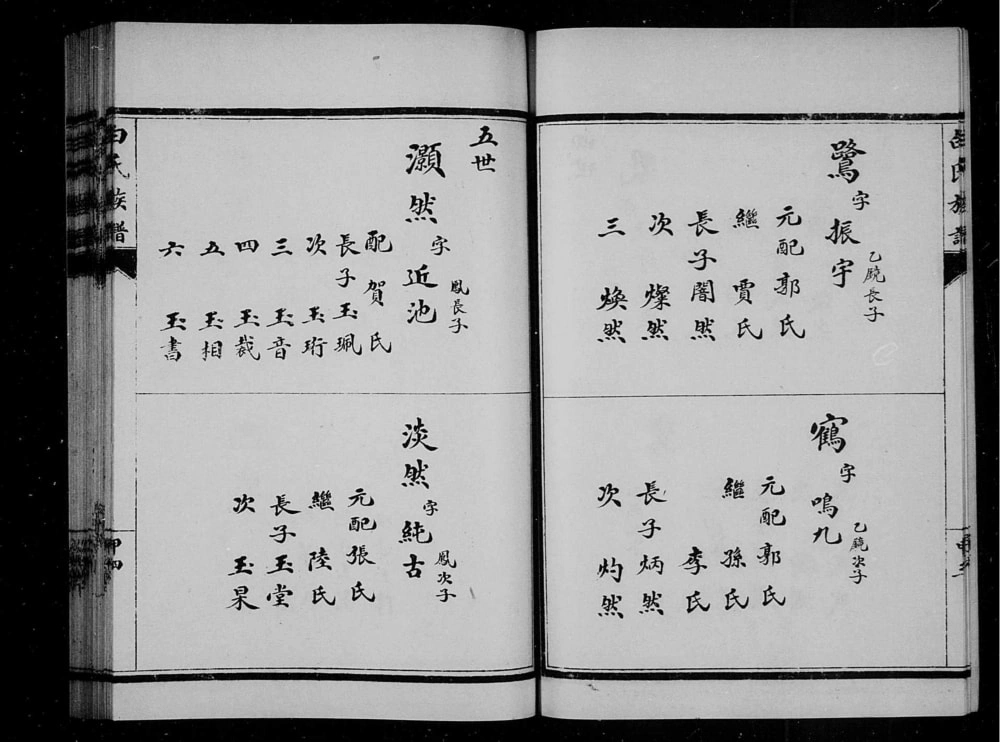 鷺字振宇
乙鏡長子
元配郭氏
繼賈氏
長子闇然
次燦然
三煥然
鶴字鳴九
乙鏡次子
元配郭氏
繼孫氏
李氏
長子炳然
次灼然
五世
灝然字近池
鳳長子
配賀氏
長子玉珮
次玉珩
三玉音
四玉裁
五玉相
六玉書
淡然字純古
鳳次子
元配張氏
繼陸氏
長子玉堂
次玉杲
氏族譜